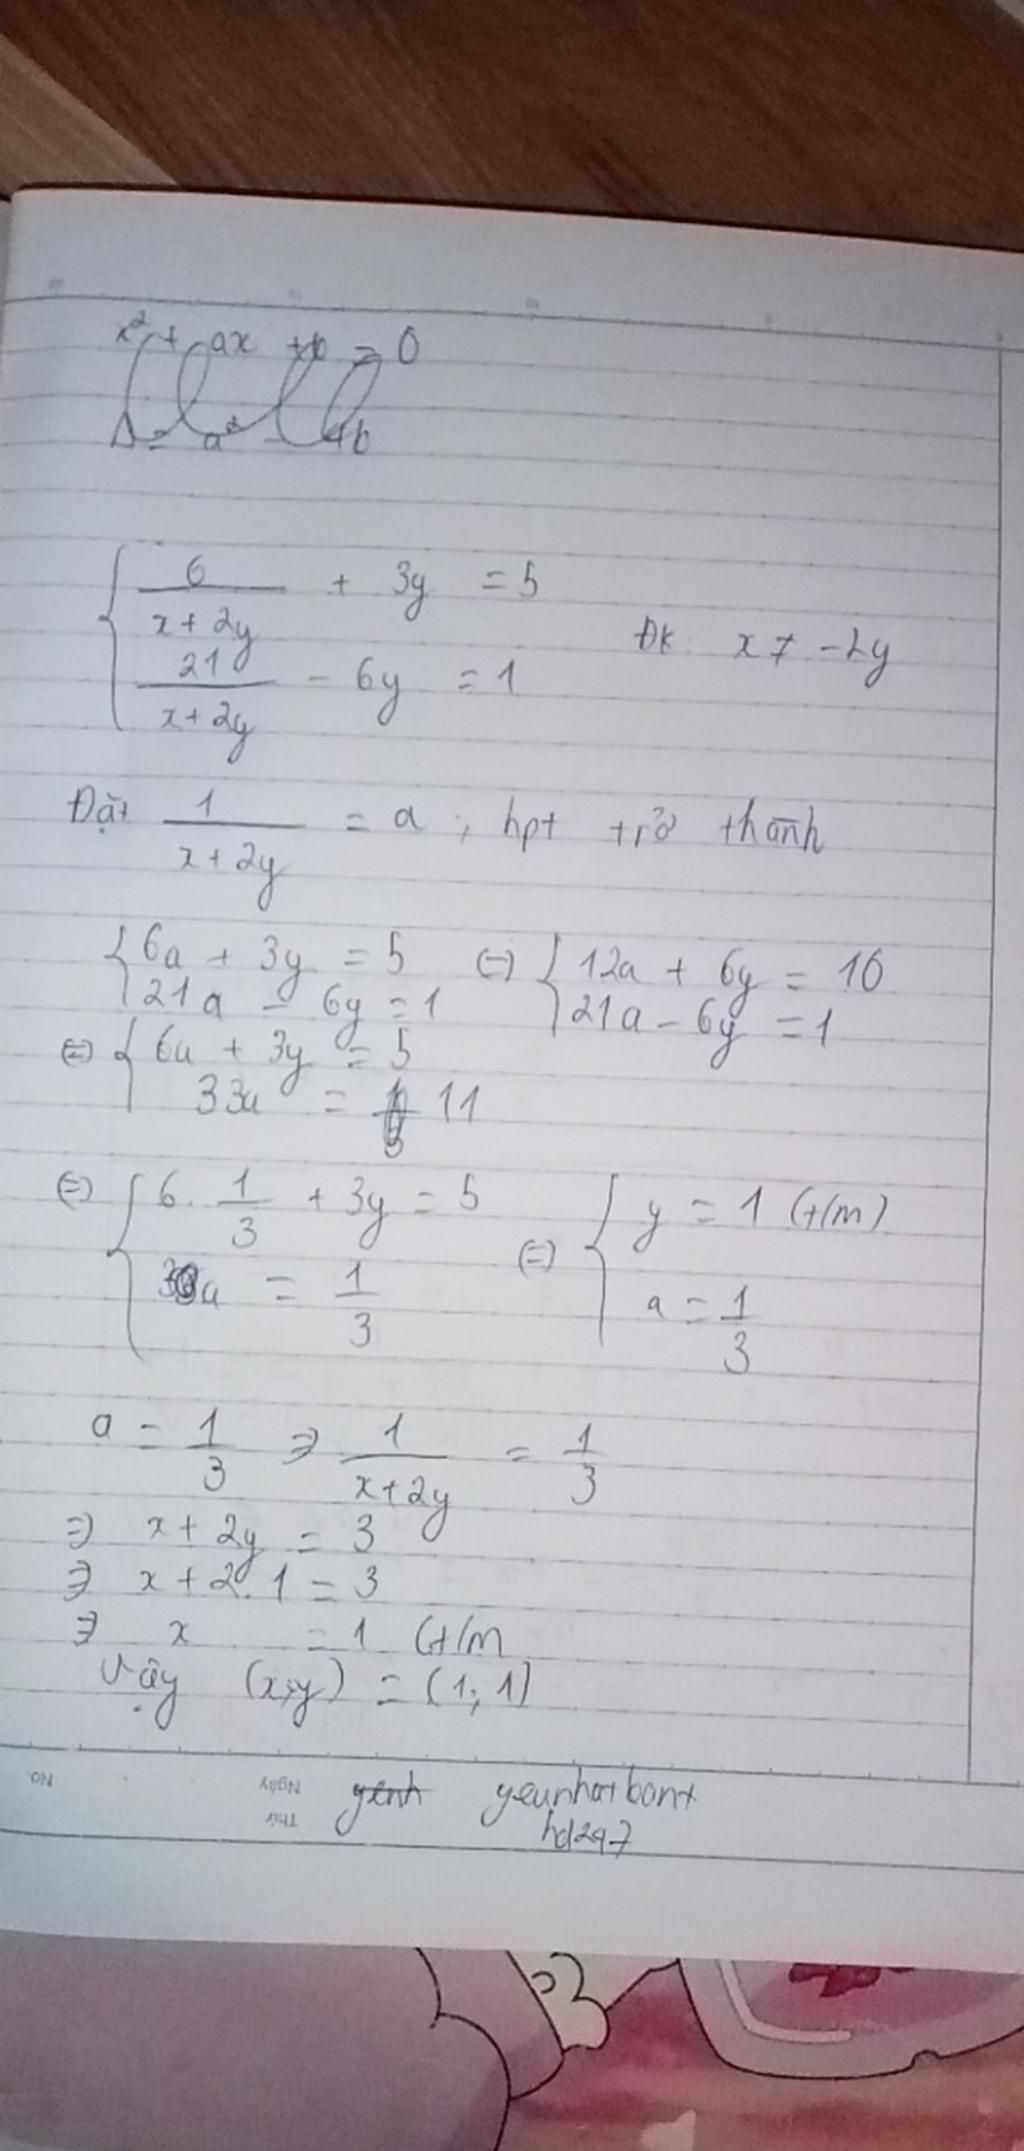 x² + ax + b = 0
Δ = a² - 4b
6/(x+2y) + 3y = 5
ĐK: x ≠ -2y
21/(x+2y) - 6y = 1
Đặt 1/(x+2y) = a ; hpt trở thành
{ 6a + 3y = 5 (=) { 12a + 6y = 10
21a - 6y = 1 21a - 6y = 1
(=) { 6a + 3y = 5
33a = 11
(=) { 6. 1/3 + 3y = 5 (=) { y = 1 (t/m)
a = 1/3 a = 1/3
a = 1/3 => 1/(x+2y) = 1/3
=) x + 2y = 3
=> x + 2.1 = 3
=> x = 1 (t/m
Vậy (x;y) = (1; 1)
No.
Ngày
Thứ
yeunhatbant
hd247